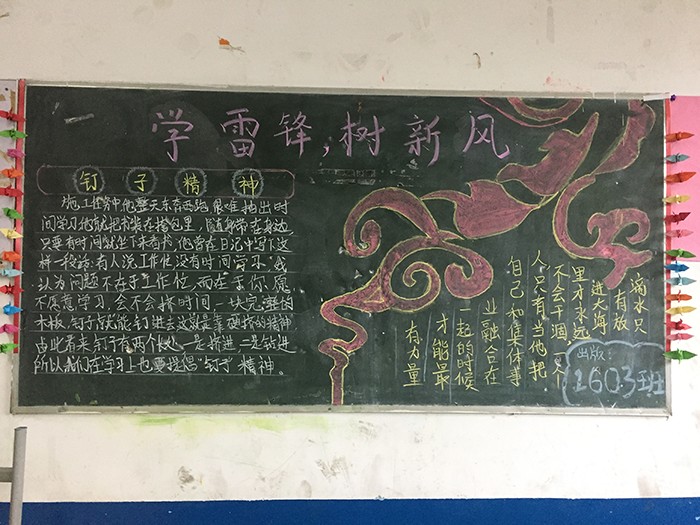 学雷锋,树新风
钉子精神
施工任务中他整天东奔西跑很难抽出时
间学习他就把书装在挎包里,随身带在身边
只要有时间就坐下来看书,他曾在日记中写下这
样一段话:有人说工作忙没有时间学习,我
认为问题不在于工作忙,而在于你愿
不愿意学习,会不会挤时间,一块完整的
木板,钉子为什么能钉进去这就是靠硬挤的精神
由此看来,钉子有两个好处,一是挤进,二是钻进
所以我们在学习上也要提倡"钉子"精神。
滴水只
有放
进大海
里才永远
不会干涸,一个
人只有当他把
自己和集体事
业融合在
一起的时候
才能最
有力量
出版:
1603班